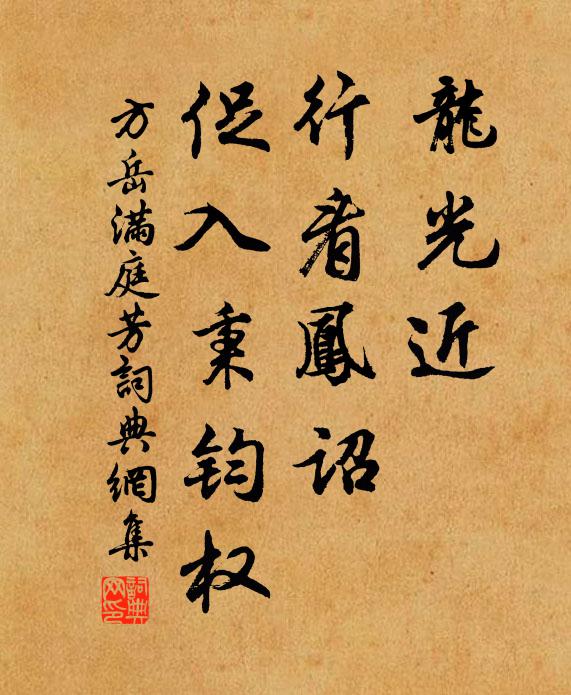 龍光近
行看鳳詔
促入秉鈞權
方岳滿庭芳詞典網集
詞典网印